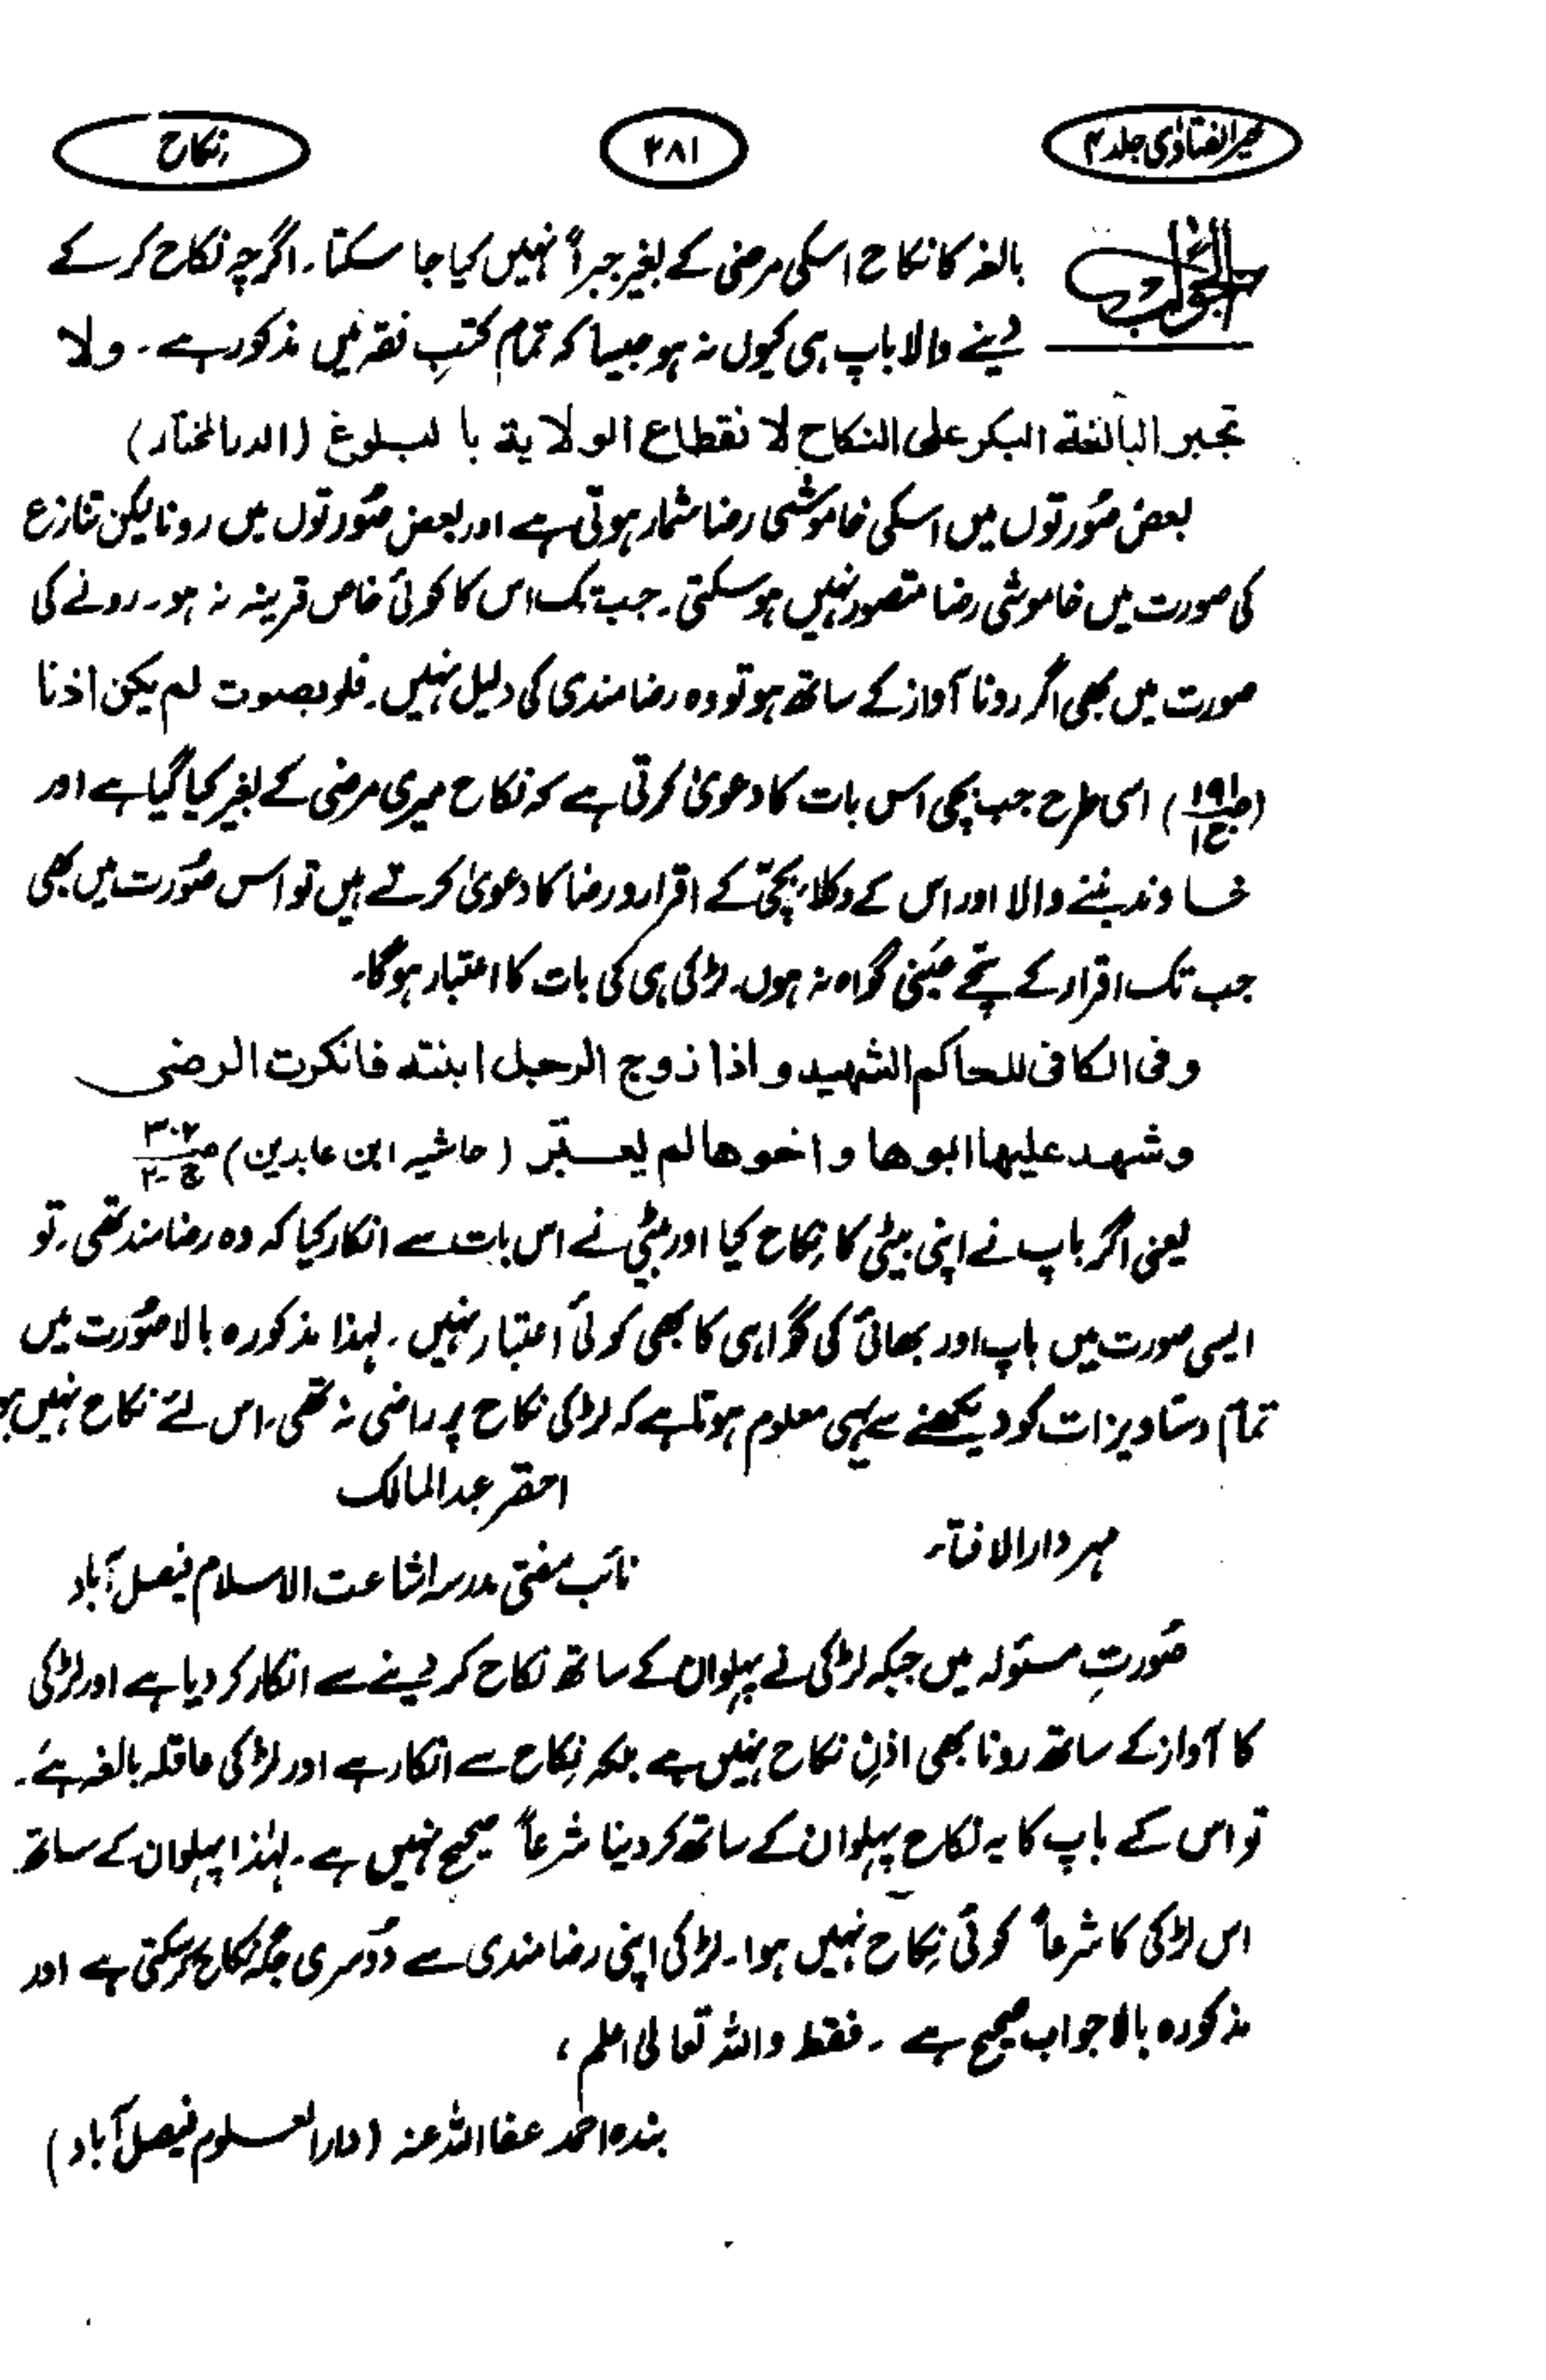 خیر الفتاوٰی جلد ۴
۳۸۱
نکاح
الجواب
بالغہ کا نکاح اسکی مرضی کے بغیر جبراً نہیں کیا جا سکتا۔ اگرچہ نکاح کر کے
دینے والا باپ ہی کیوں نہ ہو جیسا کہ تمام کتبِ فقہ میں مذکور ہے۔ ولا
تجبر البالغة البکر علی النکاح لانقطاع الولایة بالبلوغ (الدر المختار)
بعض صُورتوں میں اسکی خاموشی رضا شمار ہوتی ہے اور بعض صُورتوں میں رونا لیکن تنازع
کی صورت میں خاموشی رضا متصور نہیں ہو سکتی۔ جب تک اس کا کوئی خاص قرینہ نہ ہو۔ رونے کی
صورت میں بھی اگر رونا آواز کے ساتھ ہو تو وہ رضامندی کی دلیل نہیں۔ فلو بصوت لم یکن اذنا
(ص۱۹۱ ج۱) اسی طرح جب بچی اس بات کا دعویٰ کرتی ہے کہ نکاح میری مرضی کے بغیر کیا گیا ہے اور
خاوند بننے والا اور اس کے وکلاء بچی کے اقرار و رضا کا دعویٰ کرتے ہیں تو اس صُورت میں بھی
جب تک اقرار کے سچے عینی گواہ نہ ہوں۔ لڑکی ہی کی بات کا اعتبار ہو گا۔
وفی الکافی للحاکم الشہید و اذا زوج الرجل ابنتہ فانکرت الرضی
وشہد علیہا ابوہا و اخوہا لم یعتبر (حاشیہ ابن عابدین) ص۳۰۲ ج۲
یعنی اگر باپ نے اپنی بیٹی کا نِکاح کیا اور بیٹی نے اس بات سے انکار کیا کہ وہ رضامند تھی۔ تو
ایسی صورت میں باپ اور بھائی کی گواہی کا بھی کوئی اعتبار نہیں۔ لہذا مذکورہ بالا صُورت میں
تمام دستاویزات کو دیکھنے سے یہی معلوم ہوتا ہے کہ لڑکی نکاح پر راضی نہ تھی۔ اس لئے نکاح نہیں
احقر عبدالمالک
مہر دارالافتاء
نائب مفتی مدرسہ اشاعت الاسلام فیصل آباد
صُورتِ مسئولہ میں جبکہ لڑکی نے پہلوان کے ساتھ نکاح کر دینے سے انکار کر دیا ہے اور لڑکی
کا آواز کے ساتھ رونا بھی اذنِ نکاح نہیں ہے بلکہ نِکاح سے انکار ہے اور لڑکی عاقلہ بالغہ ہے۔
تو اس کے باپ کا یہ نکاح پہلوان کے ساتھ کر دینا شرعاً صحیح نہیں ہے۔ لہٰذا پہلوان کے ساتھ
اس لڑکی کا شرعاً کوئی نِکاح نہیں ہوا۔ لڑکی اپنی رضامندی سے دُوسری جگہ نکاح کر سکتی ہے اور
مذکورہ بالا جواب صحیح ہے۔ فقط واللہ تعالیٰ اعلم،
بندہ احمد عفا اللہ عنہ (دارالعلوم فیصل آباد)